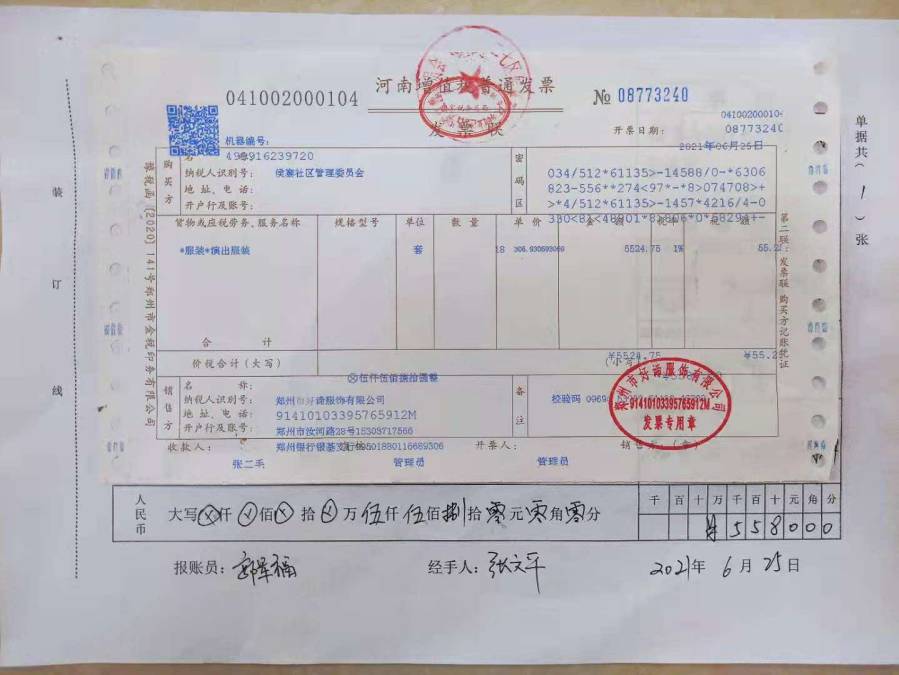 河南增值税普通发票
发票联
041002000104
№ 08773240
041002000104
08773240
机器编号:
499916239720
开票日期:
2021年06月25日
单据共( 1 )张
装订线
豫税函〔2020〕141号郑州市金税印务有限公司
第二联:发票联 购买方记账凭证
购买方
名
纳税人识别号:
侯寨社区管理委员会
地址、电话:
开户行及账号:
密码区
034/512*61135>-14588/0-*6306
823-556**274<97*-*8>074708>+
>*4/512*61135>-1457*4216/4-0
380<82<48901*82806*0*58294+-
货物或应税劳务、服务名称
规格型号
单位
数量
单价
金额
税率
税额
*服装*演出服装
套
18
306.930693069
5524.75
1%
55.25
合计
¥5524.75
¥55.25
价税合计(大写)
(小写)
ⓧ伍仟伍佰捌拾圆整
销售方
名称:
纳税人识别号:
郑州市好谛服饰有限公司
地址、电话:
91410103395765912M
开户行及账号:
郑州市汝河路28号15303717566
郑州银行银基支行99501880116689306
备注
校验码
收款人:
张二毛
管理员
开票人:
管理员
销售方:(章)
郑州市好谛服饰有限公司
91410103395765912M
发票专用章
人民币
大写ⓧ仟ⓧ佰ⓧ拾ⓧ万伍仟伍佰捌拾零元零角零分
千百十万千百十元角分
¥558000
报账员:
经手人: 张文平
2021年6月25日